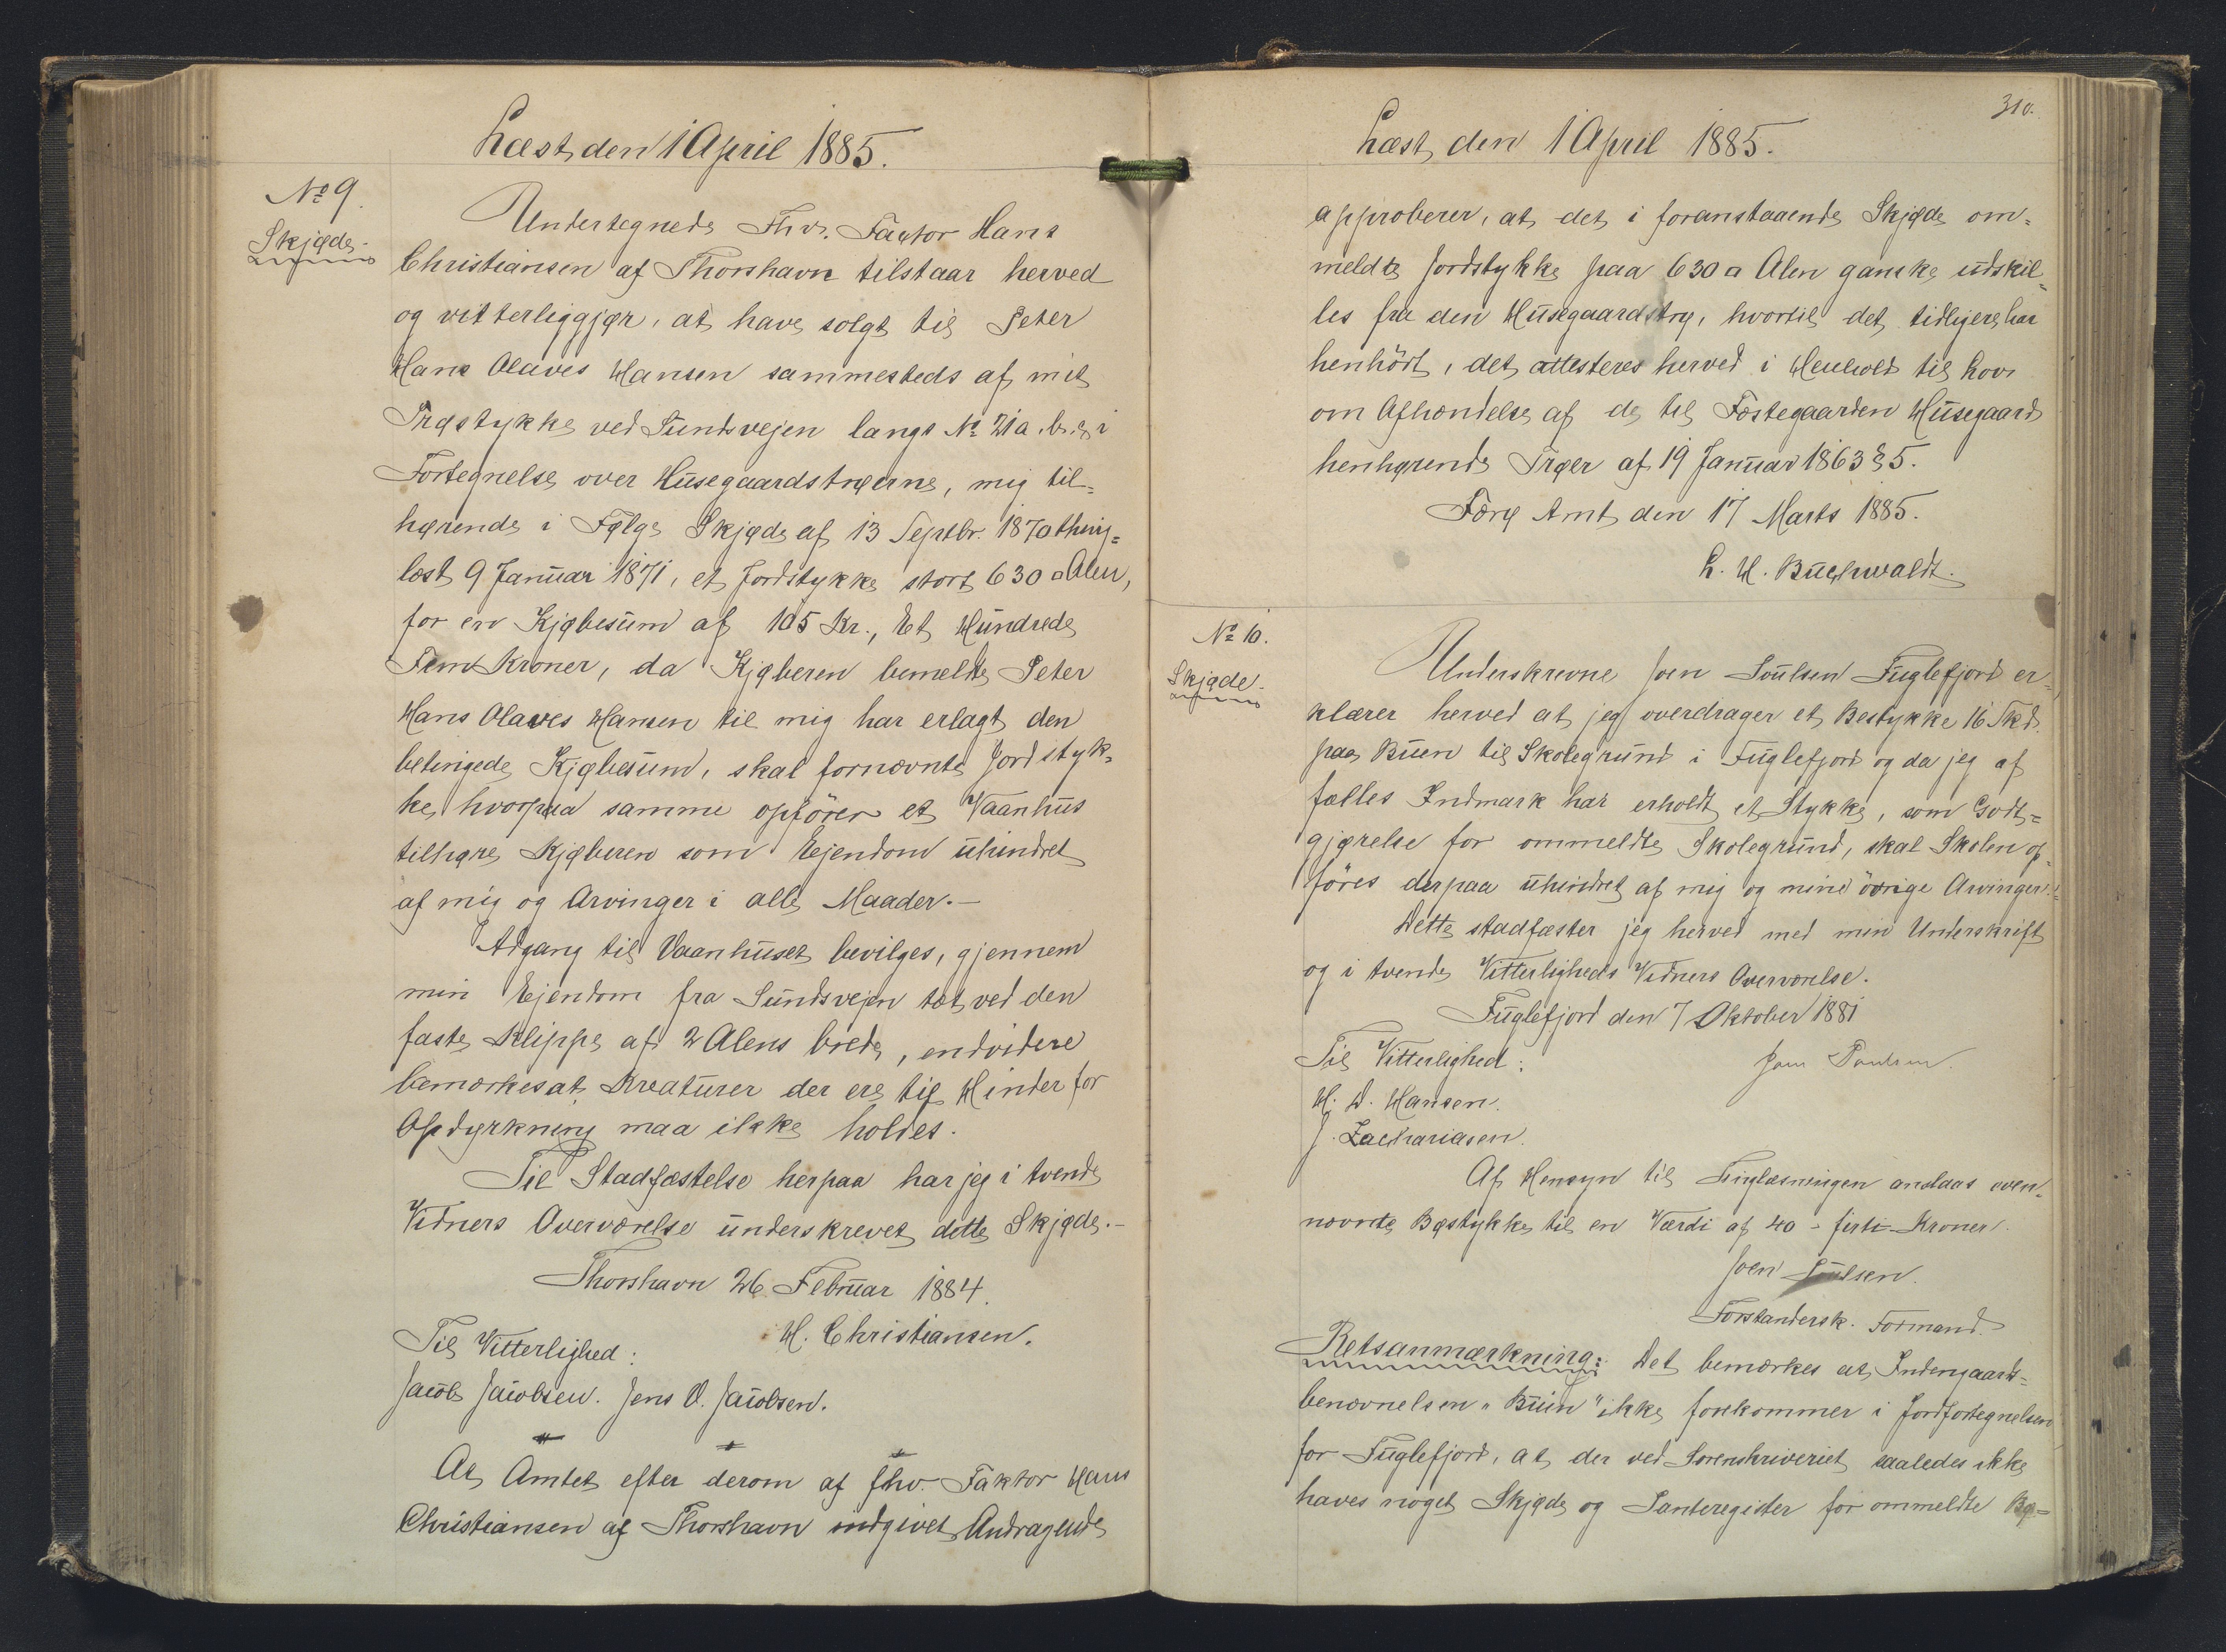 Læst den 1 April 1885.
No 9.
Skjøde.
Undertegnede Fhv. Factor Hans
Christiansen af Thorshavn tilstaar herved
og vitterliggjør, at have solgt til Peter
Hans Olaves Hansen sammesteds af mit
Trøstykke ved Sundsvejen langs No 21a. b. c, i
Fortegnelse over Husegaardstrøerne, mig til=
hørende i Følge Skjøde af 13 Septbr. 1870 thing=
læst 9 Januar 1871, et Jordstykke stort 630 □ Alen,
for en Kjøbesum af 105 Kr., Et Hundrede
Fem Kroner, da Kjøberen bemeldte Peter
Hans Olaves Hansen til mig har erlagt den
betingede Kjøbesum, skal fornævnte Jordstyk=
ke, hvorpaa samme opfører et Vaanhus
tilhøre Kjøberen som Eejendom uhindret
af mig og Arvinger i alle Maader.—
Adgang til Vaanhuset bevilges, gjennem
min Eejendom fra Sundsvejen tæt ved den
faste Klippe af 2 Alens brede, endvidere
bemærkes at Kreaturer der ere til Hinder for
Opdyrkning maa ikke holdes.
Til Stadfæstelse herpaa har jeg i tvende
Vidners Overværelse underskrevet dette Skjøde.—
Thorshavn 26 Februar 1884.
H. Christiansen.
Til Vitterlighed:
Jacob Jacobsen. Jens O. Jacobsen.
At Amtet efter derom af fhv. Faktor Hans
Christiansen af Thorshavn indgivet Andragende
310.
Læst den 1 April 1885.
approberer, at det i foranstaaende Skjøde om=
meldte Jordstykke paa 630 □ Alen ganske udskil=
les fra den Husegaardstrø, hvortil det tidligere har
henhørt, det attesteres herved i Henhold til Lov
om Afhændelse af de til Fæstegaarden Husegaard
henhørende Trøer af 19 Januar 1863 § 5.
Færø Amt den 17 Marts 1885.
L. H. Buchwaldt.
No 10.
Skjøde.
Underskrevne Joen Poulsen Fuglefjord er=
klærer herved at jeg overdrager et Bøstykke 16 Skd.
paa Buen til Skolegrund i Fuglefjord og da jeg af
fælles Indmark har erholdt et Stykke, som Godt=
gjørelse for ommeldte Skolegrund, skal Skolen op=
føres derpaa uhindret af mig og mine øvrige Arvinger.
Dette stadfæster jeg herved med min Underskrift
og i tvende Vitterligheds Vidners Overværelse.
Fuglefjord den 7 Oktober 1881
Til Vitterlighed: Joen Poulsen.
H. D. Hansen.
J. Zachariasen.
Af Hensyn til Tinglæsningen anslaas oven=
nævnte Bøstykke til en Værdi af 40 - firti - Kroner.
Joen Poulsen.
Forstandersk. Formand.
Retsanmærkning: Det bemærkes at Indengaards=
benævnelsen "Buin" ikke forekommer i Jordfortegnelsen
for Fuglefjord, at der ved Sorenskriveriet saaledes ikke
haves noget Skjøde og Panteregister for ommeldte Bø=